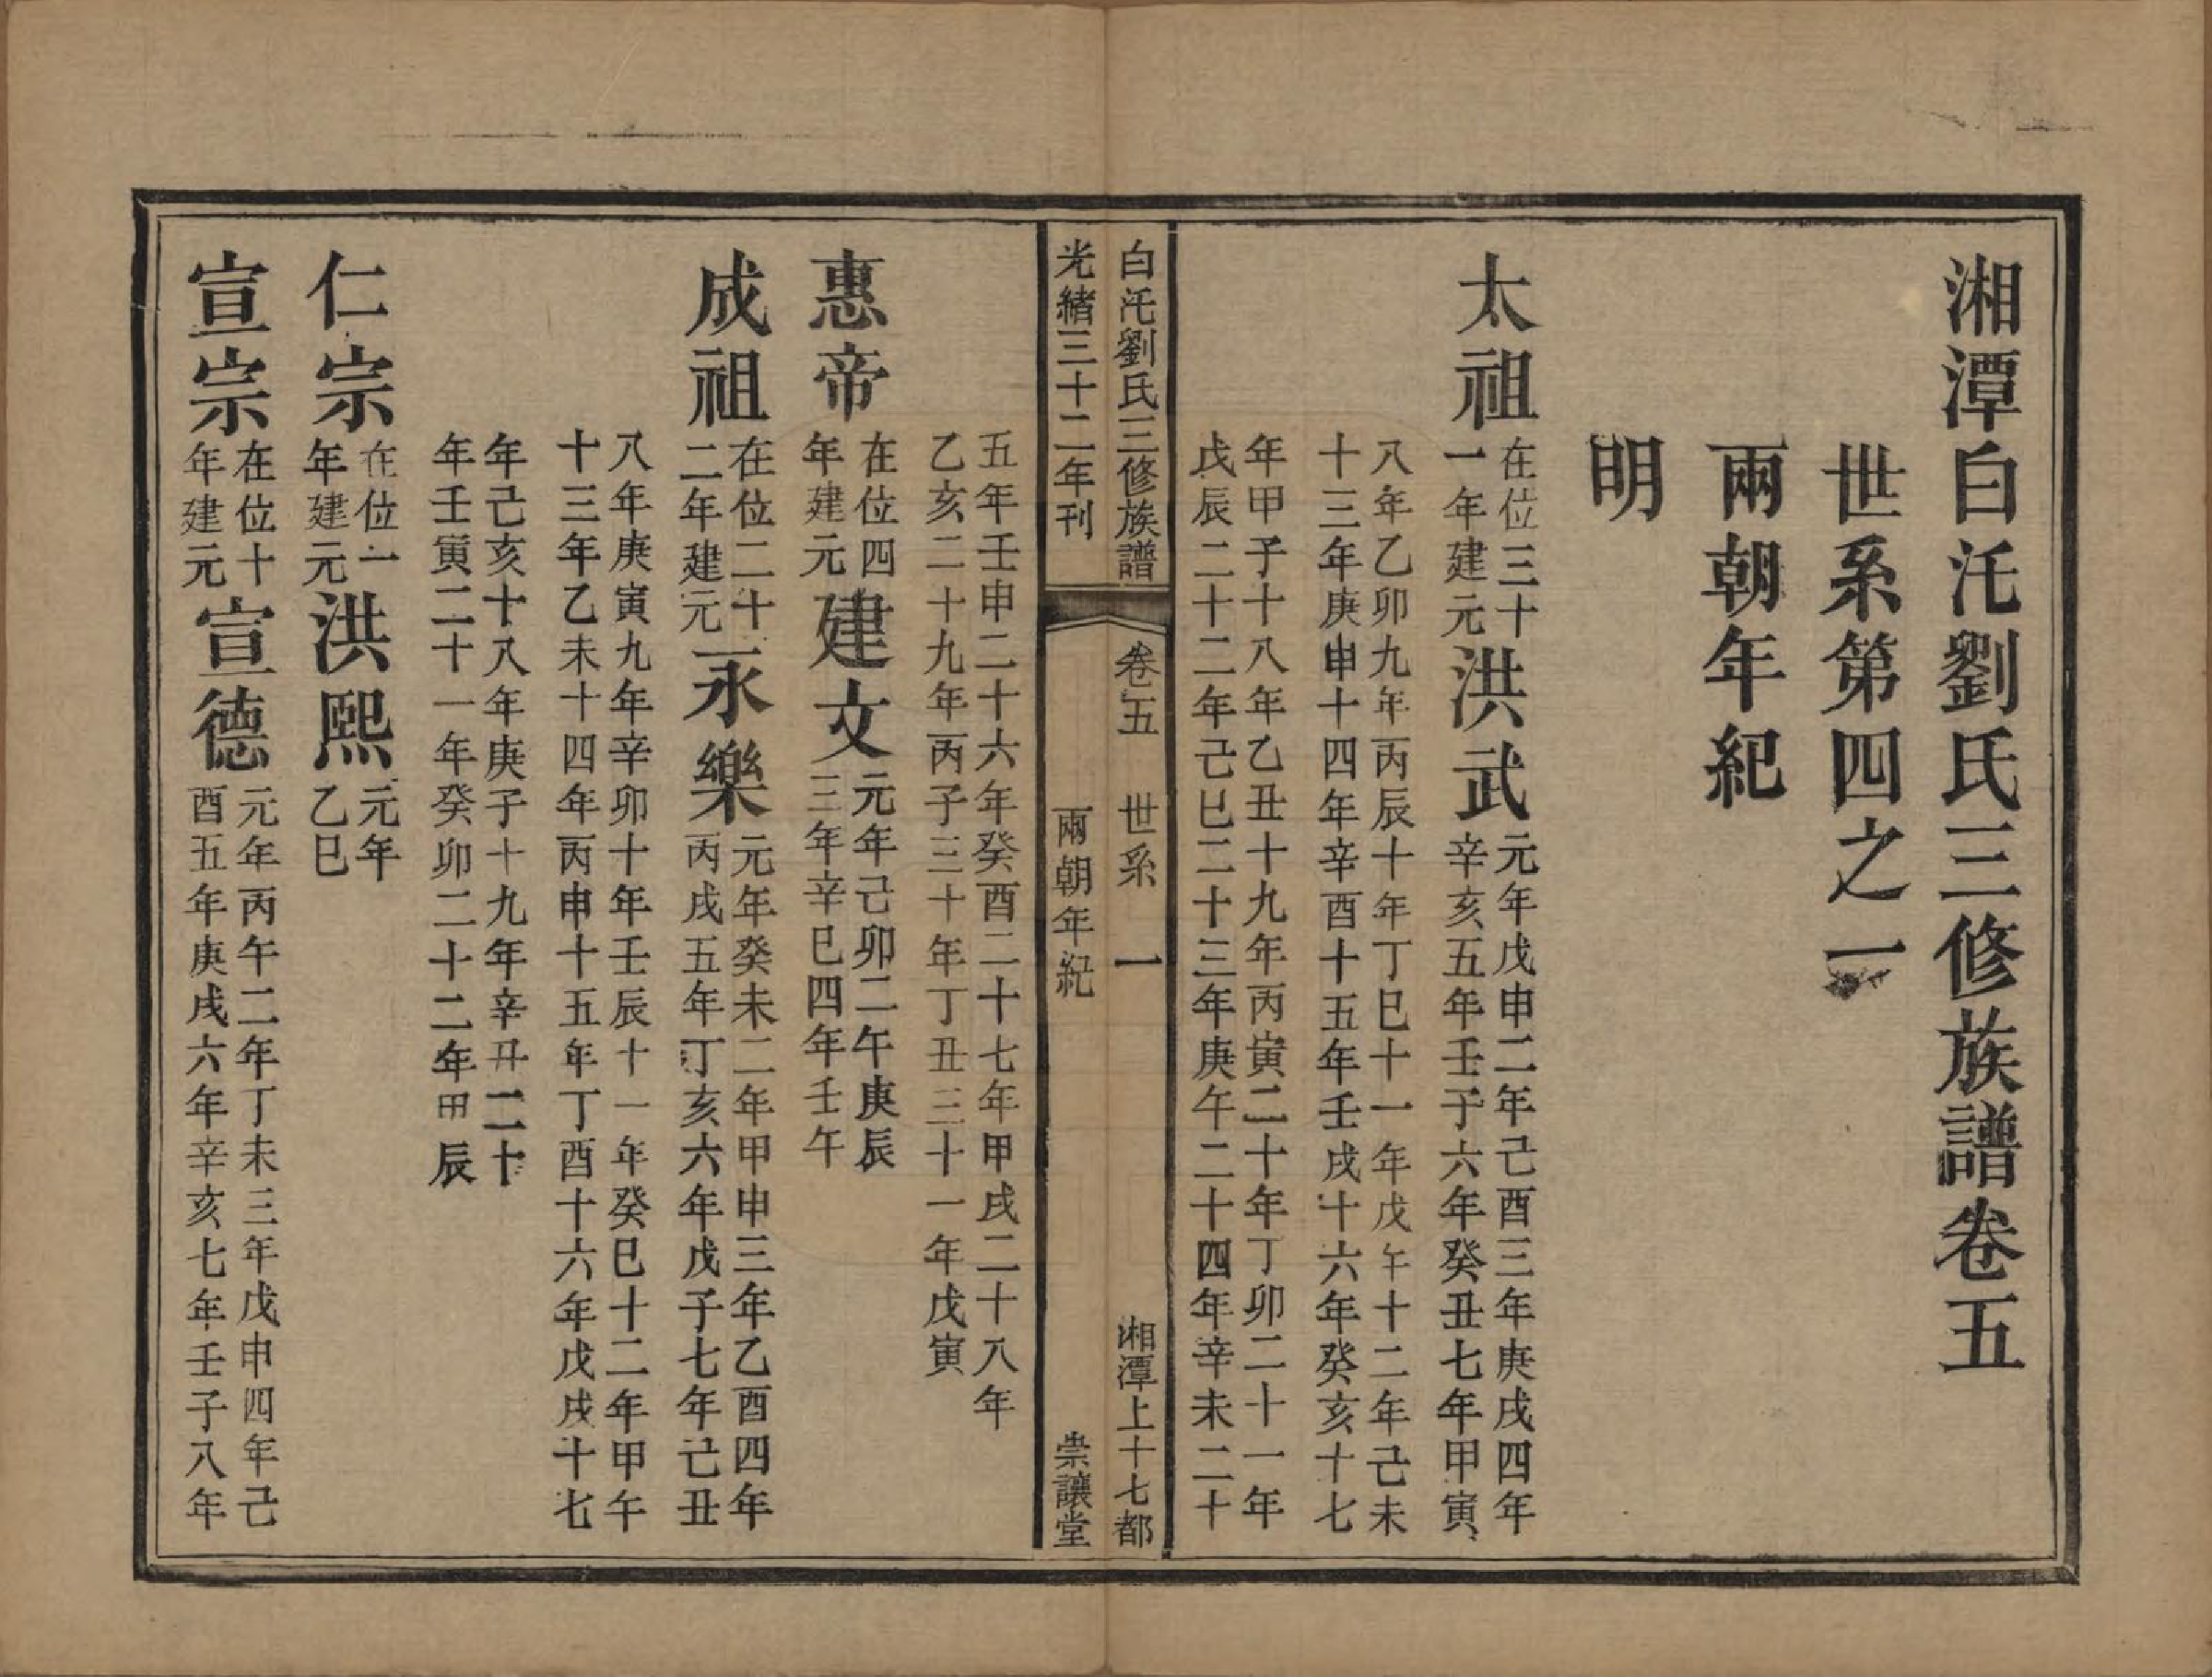 湘潭白汑劉氏三修族譜卷五
世系第四之一
兩朝年紀
明
太祖
在位三十
一年建元
洪武
元年戊申二年己酉三年庚戌四年
辛亥五年壬子六年癸丑七年甲寅
八年乙卯九年丙辰十年丁巳十一年戊午十二年己未
十三年庚申十四年辛酉十五年壬戌十六年癸亥十七
年甲子十八年乙丑十九年丙寅二十年丁卯二十一年
戊辰二十二年己巳二十三年庚午二十四年辛未二十
白汑劉氏三修族譜
卷五
世系
一
湘潭上十七都
光緒三十二年刊
兩朝年紀
崇讓堂
五年壬申二十六年癸酉二十七年甲戌二十八年
乙亥二十九年丙子三十年丁丑三十一年戊寅
惠帝
在位四
年建元
建文
元年己卯二午庚辰
三年辛巳四年壬午
成祖
在位二十
二年建元
永樂
元年癸未二年甲申三年乙酉四年
丙戌五年丁亥六年戊子七年己丑
八年庚寅九年辛卯十年壬辰十一年癸巳十二年甲午
十三年乙未十四年丙申十五年丁酉十六年戊戌十七
年己亥十八年庚子十九年辛丑二十
年壬寅二十一年癸卯二十二年甲辰
仁宗
在位一
年建元
洪熙
元年
乙巳
宣宗
在位十
年建元
宣德
元年丙午二年丁未三年戊申四年己
酉五年庚戌六年辛亥七年壬子八年